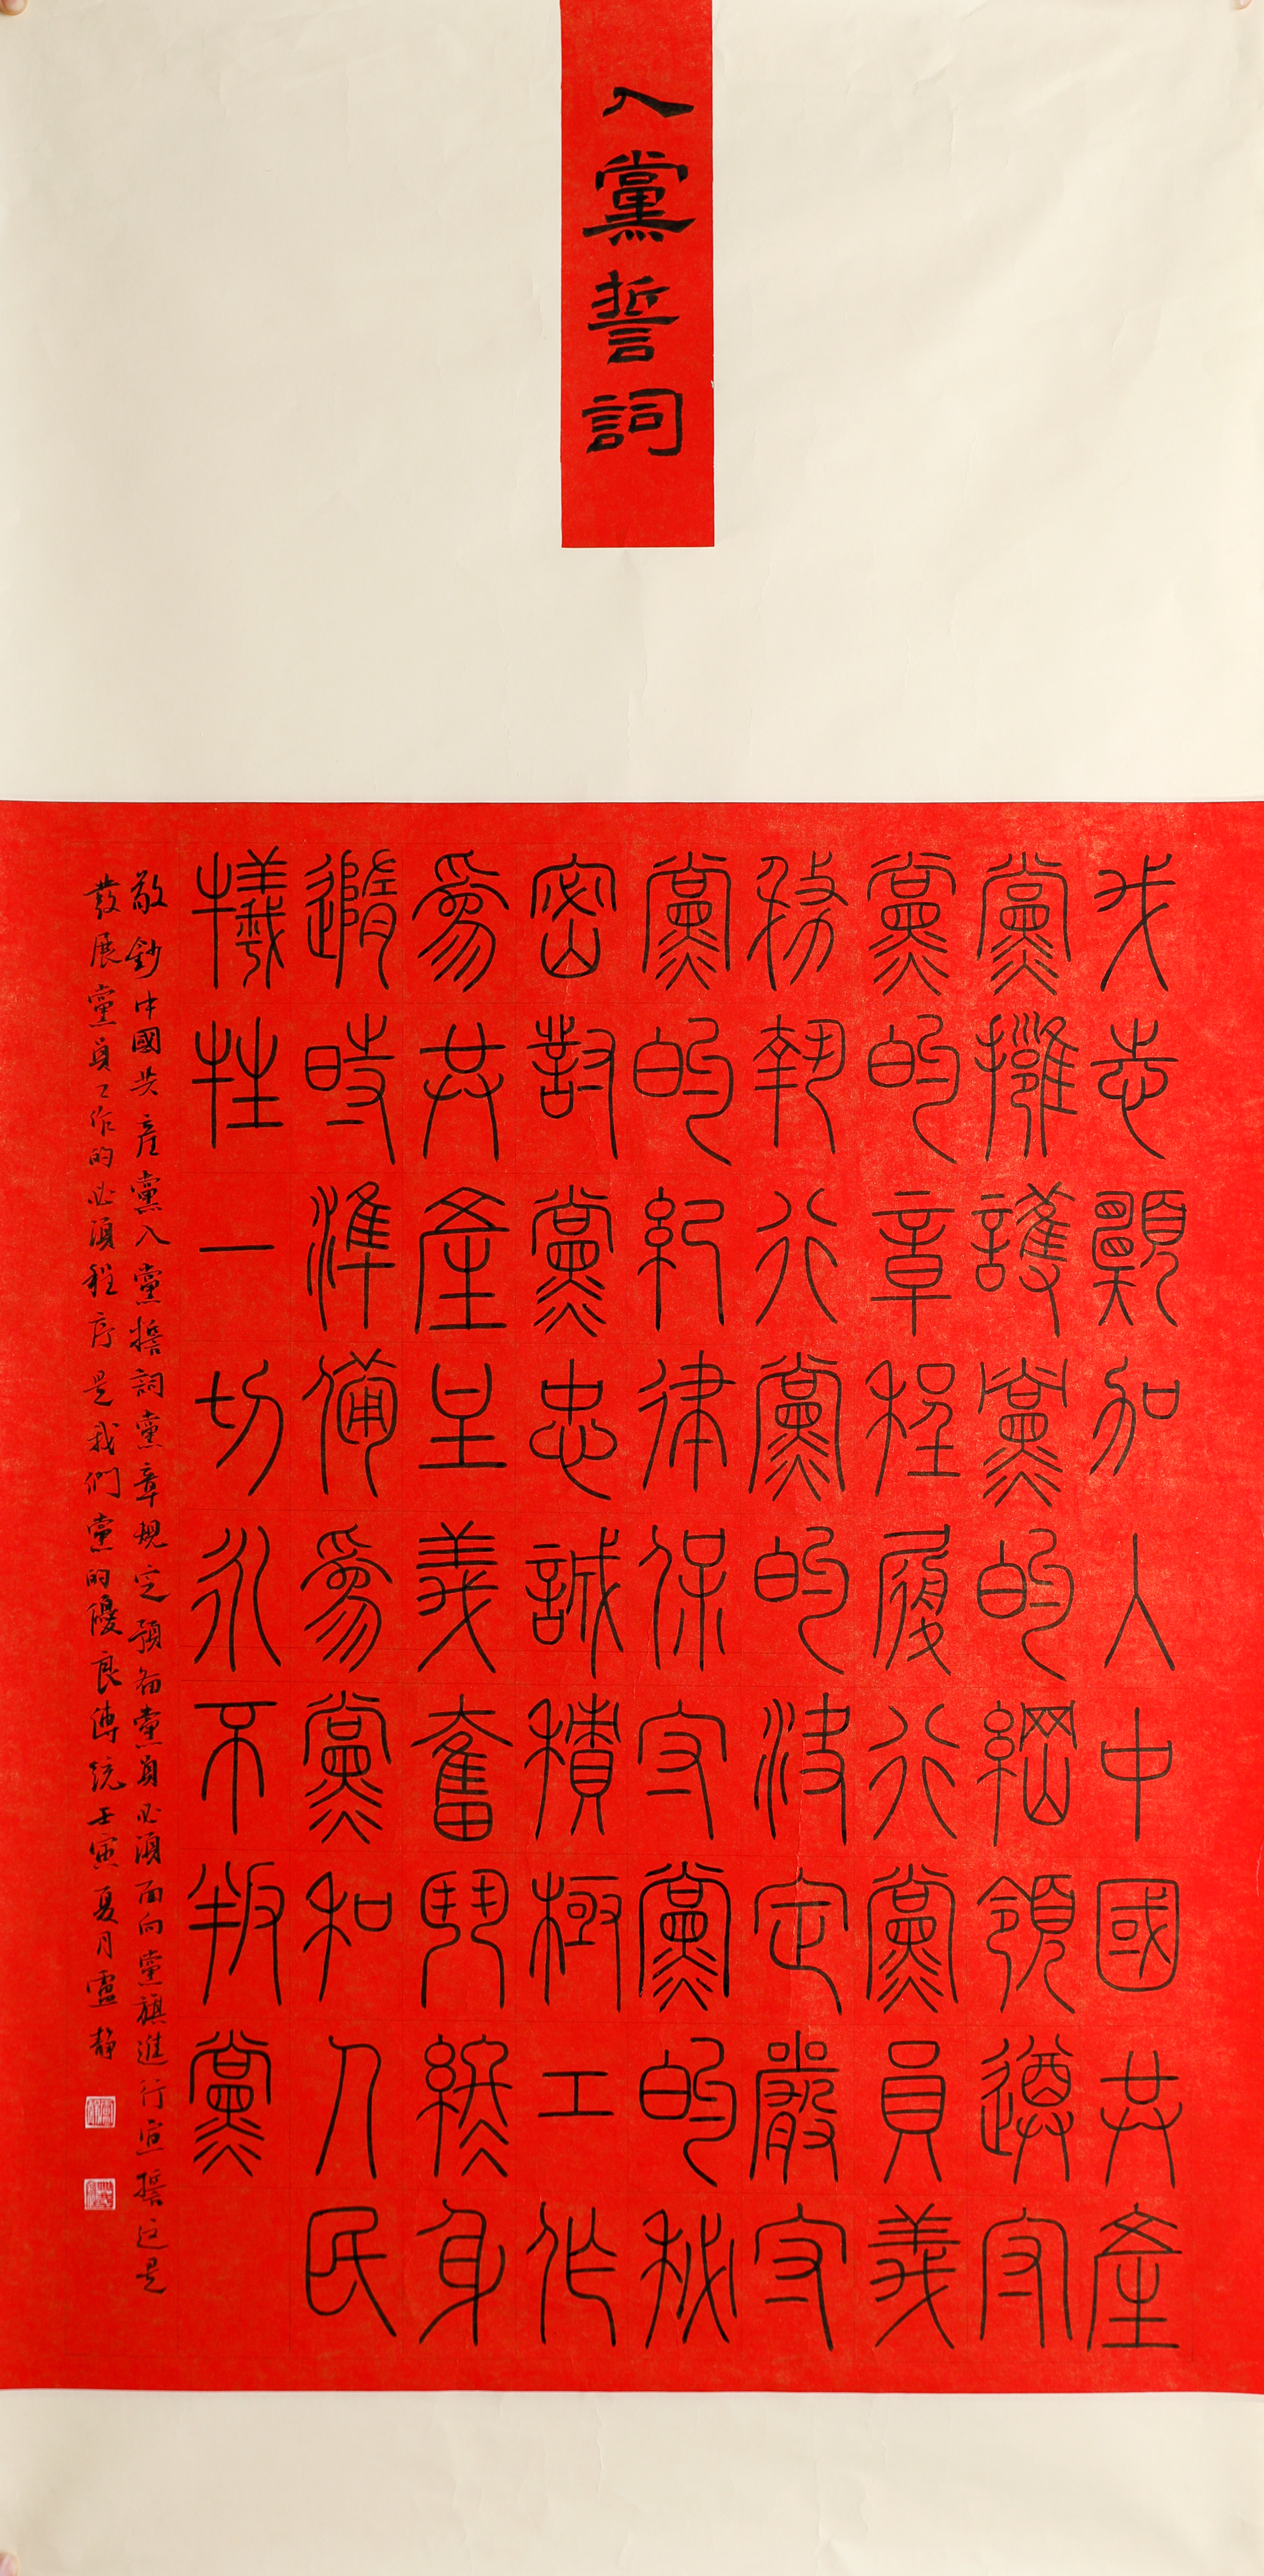 入黨誓詞
我志願加入中國共產
黨擁護黨的綱領遵守
黨的章程履行黨員義
務執行黨的決定嚴守
黨的紀律保守黨的秘
密對黨忠誠積極工作
爲共產主義奮鬥終身
隨時準備爲黨和人民
犧牲一切永不叛黨
敬鈔中國共產黨入黨誓詞黨章規定預备黨員必須面向黨旗進行宣誓这是
發展黨員工作的必須程序是我們黨的優良傳統壬寅夏月盧靜